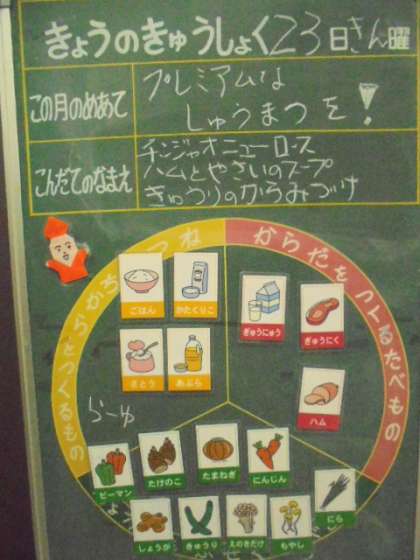 きょうのきゅうしょく23日きん曜
この月のめあて
プレミアムな
しゅうまつを!
こんだてのなまえ
チンジャオニューロース
ハムとやさいのスープ
きゅうりのからみづけ
からだをつくるたべもの
ごはん
かたくりこ
ぎゅうにゅう
ぎゅうにく
さとう
あぶら
ハム
らーゆ
ピーマン
たけのこ
たまねぎ
にんじん
しょうが
きゅうり
えのきだけ
もやし
にら